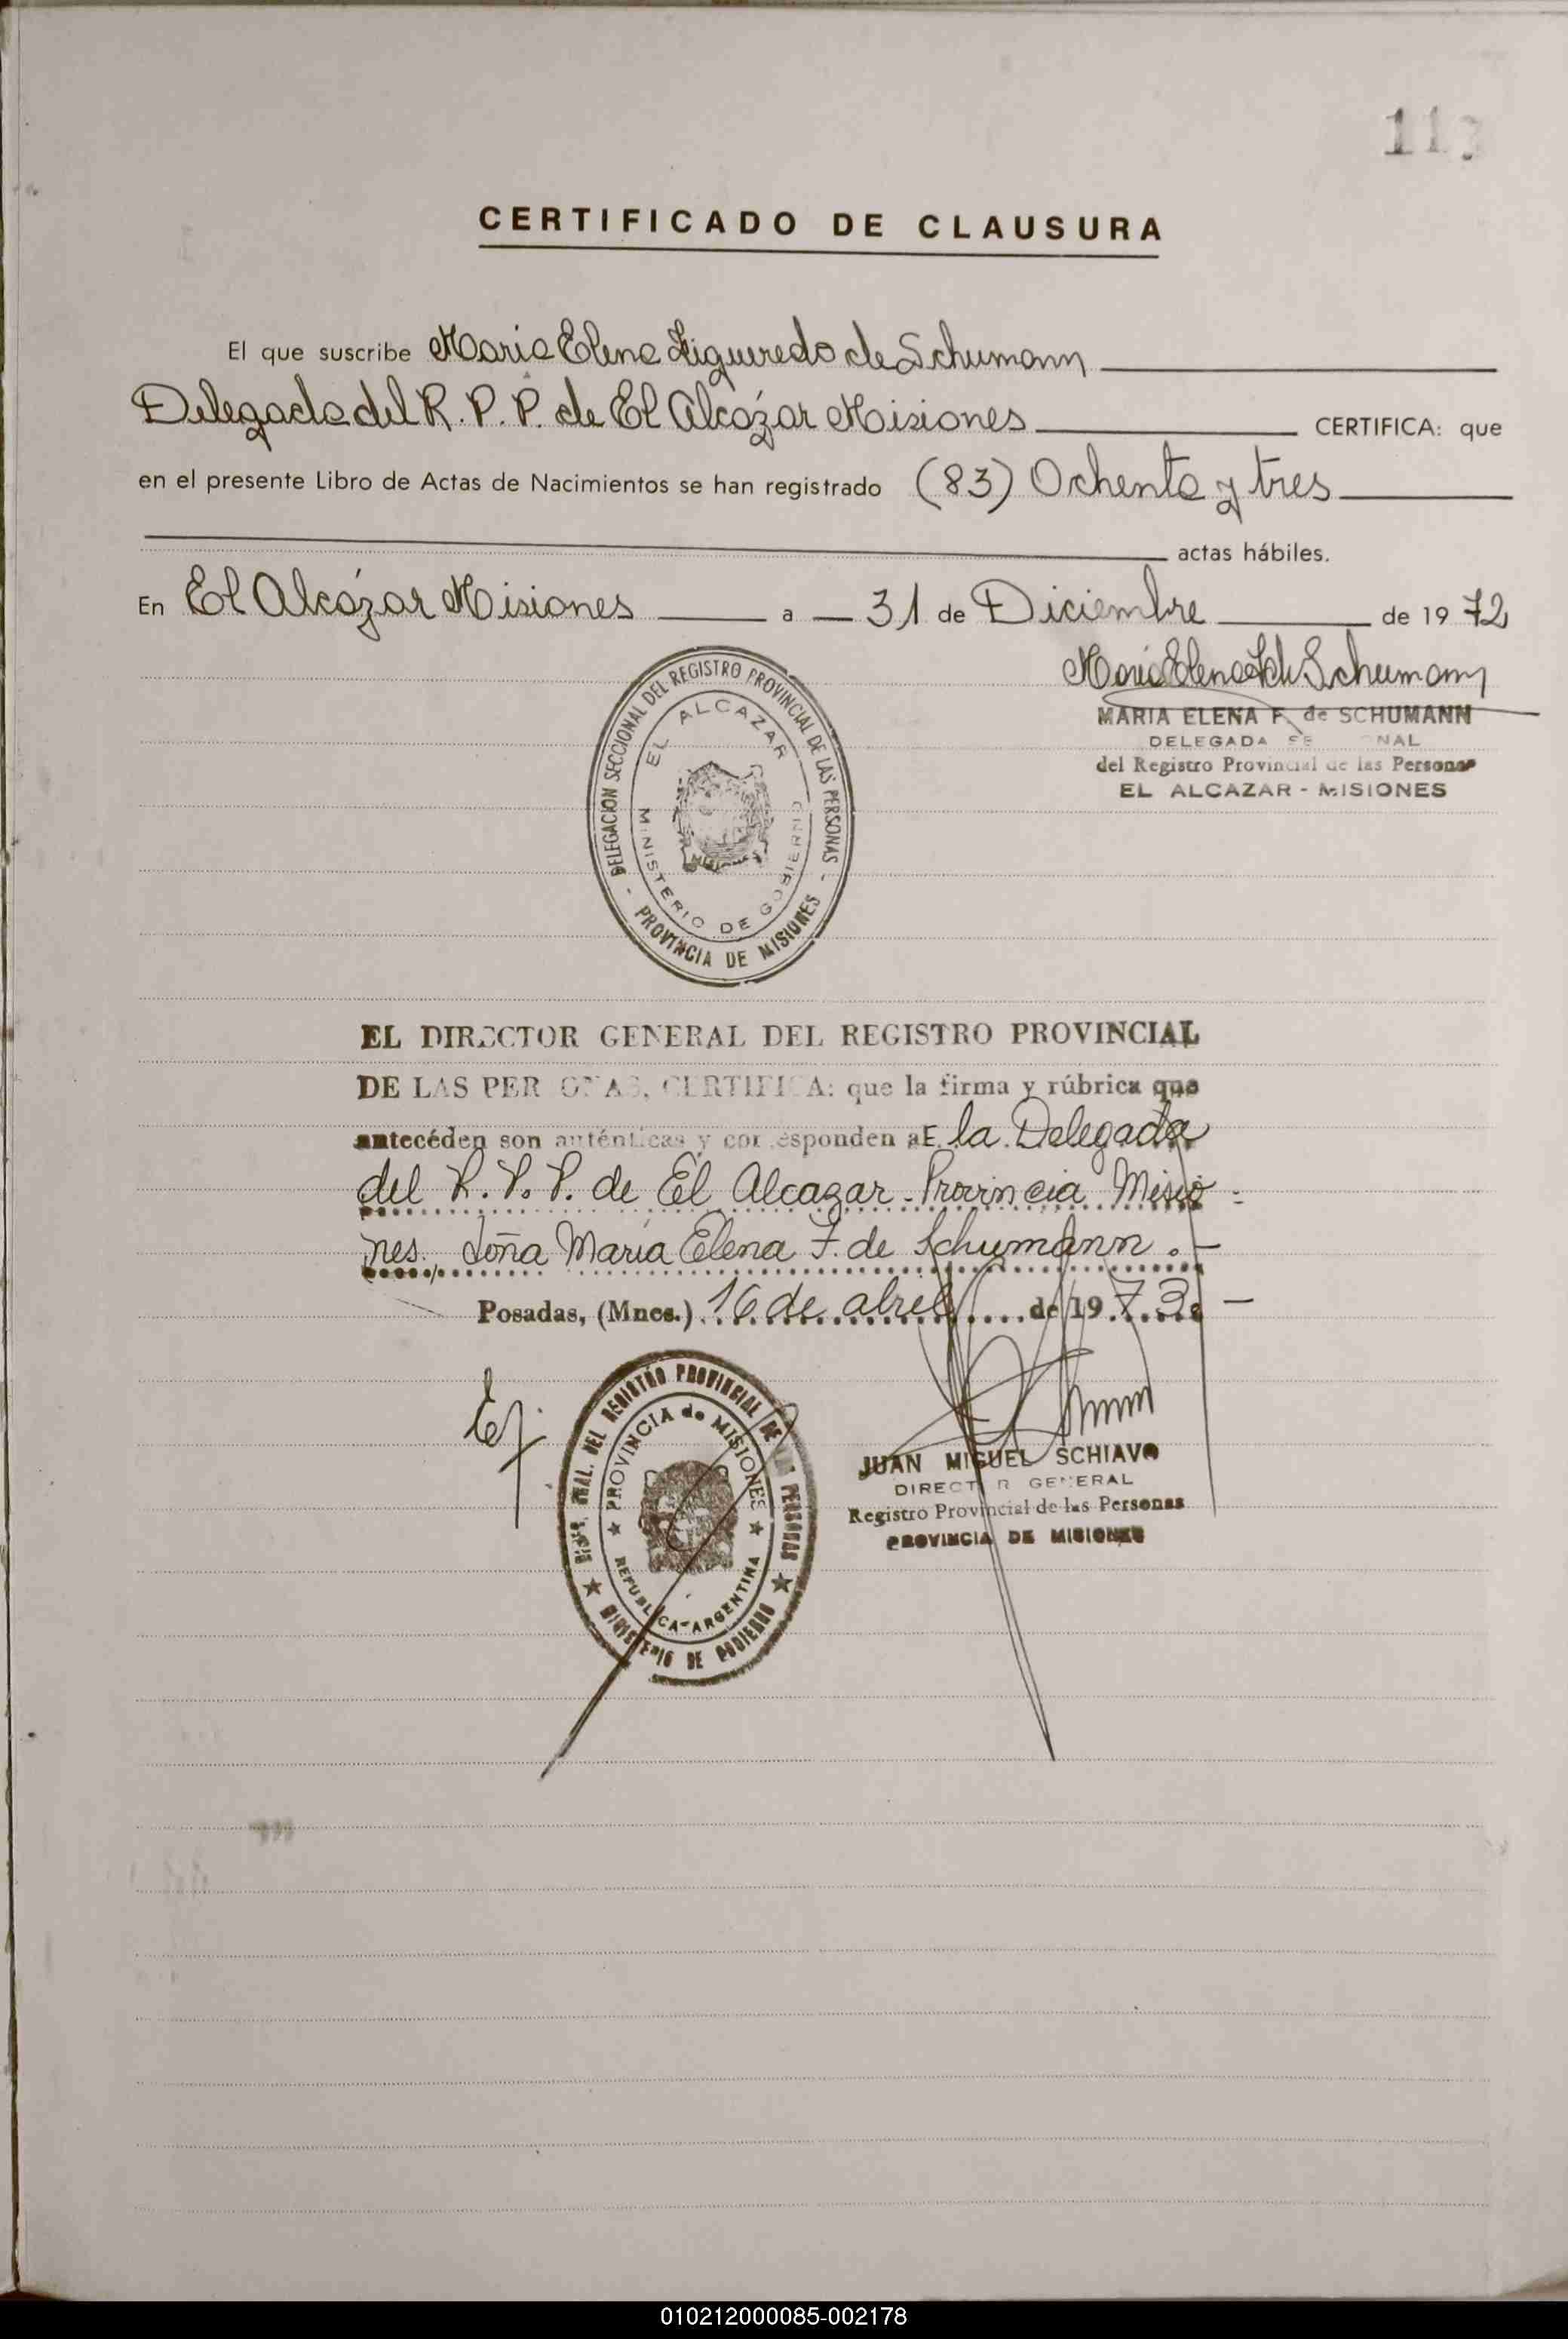 CERTIFICADO DE CLAUSURA
El que suscribe Maria Elena Figueredo de Schumann
Delegada del R. P. P. de El Alcázar Misiones CERTIFICA: que
en el presente Libro de Actas de Nacimientos se han registrado (83) Ochenta y tres
actas hábiles.
En El Alcázar Misiones a 31 de Diciembre de 1972
Maria Elena F de Schumann
MARIA ELENA F. de SCHUMANN
DELEGADA
del Registro Provincial de las Personas
EL ALCAZAR - MISIONES
DELEGACION SECCIONAL DEL REGISTRO PROVINCIAL DE LAS PERSONAS
- PROVINCIA DE MISIONES -
EL ALCAZAR
MINISTERIO DE GOBIERNO
EL DIRECTOR GENERAL DEL REGISTRO PROVINCIAL
DE LAS PERSONAS, CERTIFICA: que la firma y rúbrica que
antecéden son auténticas y corresponden a la Delegada
del R. P. P. de El Alcazar - Provincia Misio-
nes. Doña María Elena F. de Schumann.-
Posadas, (Mnes.) 16 de abril de 1973.-
JUAN MIGUEL SCHIAVO
DIRECTOR GENERAL
Registro Provincial de las Personas
PROVINCIA DE MISIONES
DIREC. GRAL. DEL REGISTRO PROVINCIAL DE LAS PERSONAS
★ MINISTERIO DE GOBIERNO ★
★ PROVINCIA de MISIONES ★
REPUBLICA ARGENTINA
010212000085-002178